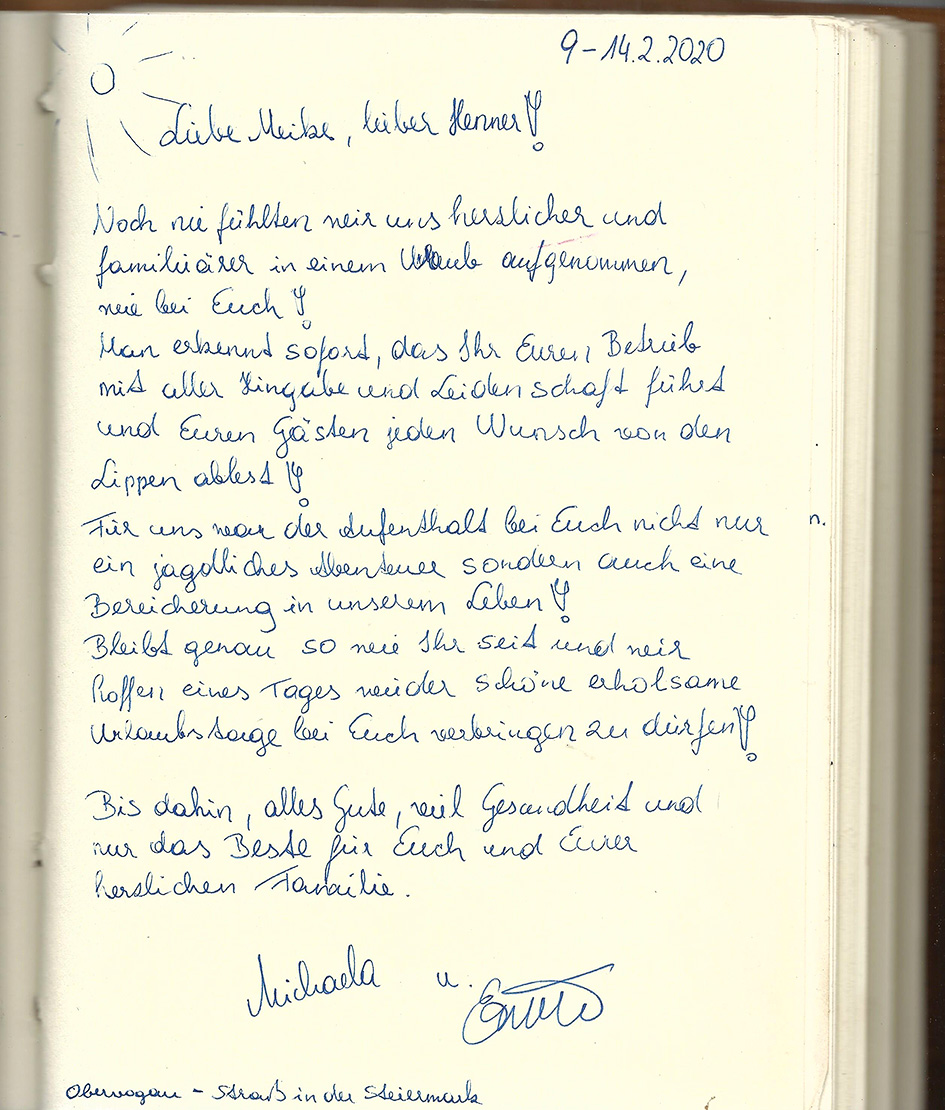 9-14.2.2020
Liebe Meike, lieber Henner!
Noch nie fühlten wir uns herzlicher und
familiärer in einem Urlaub aufgenommen,
wie bei Euch!
Man erkennt sofort, das Ihr Euren Betrieb
mit aller Hingabe und Leidenschaft führt
und Euren Gästen jeden Wunsch von den
Lippen ablest!
Für uns war der Aufenthalt bei Euch nicht nur
n.
ein jagdliches Abenteuer sondern auch eine
Bereicherung in unserem Leben!
Bleibt genau so wie Ihr seit und wir
hoffen eines Tages wieder schöne erholsame
Urlaubstage bei Euch verbringen zu dürfen!
Bis dahin, alles Gute, viel Gesundheit und
nur das Beste für Euch und Eurer
herzlichen Familie.
Michaela u.
Obervogau - Straß in der Steiermark